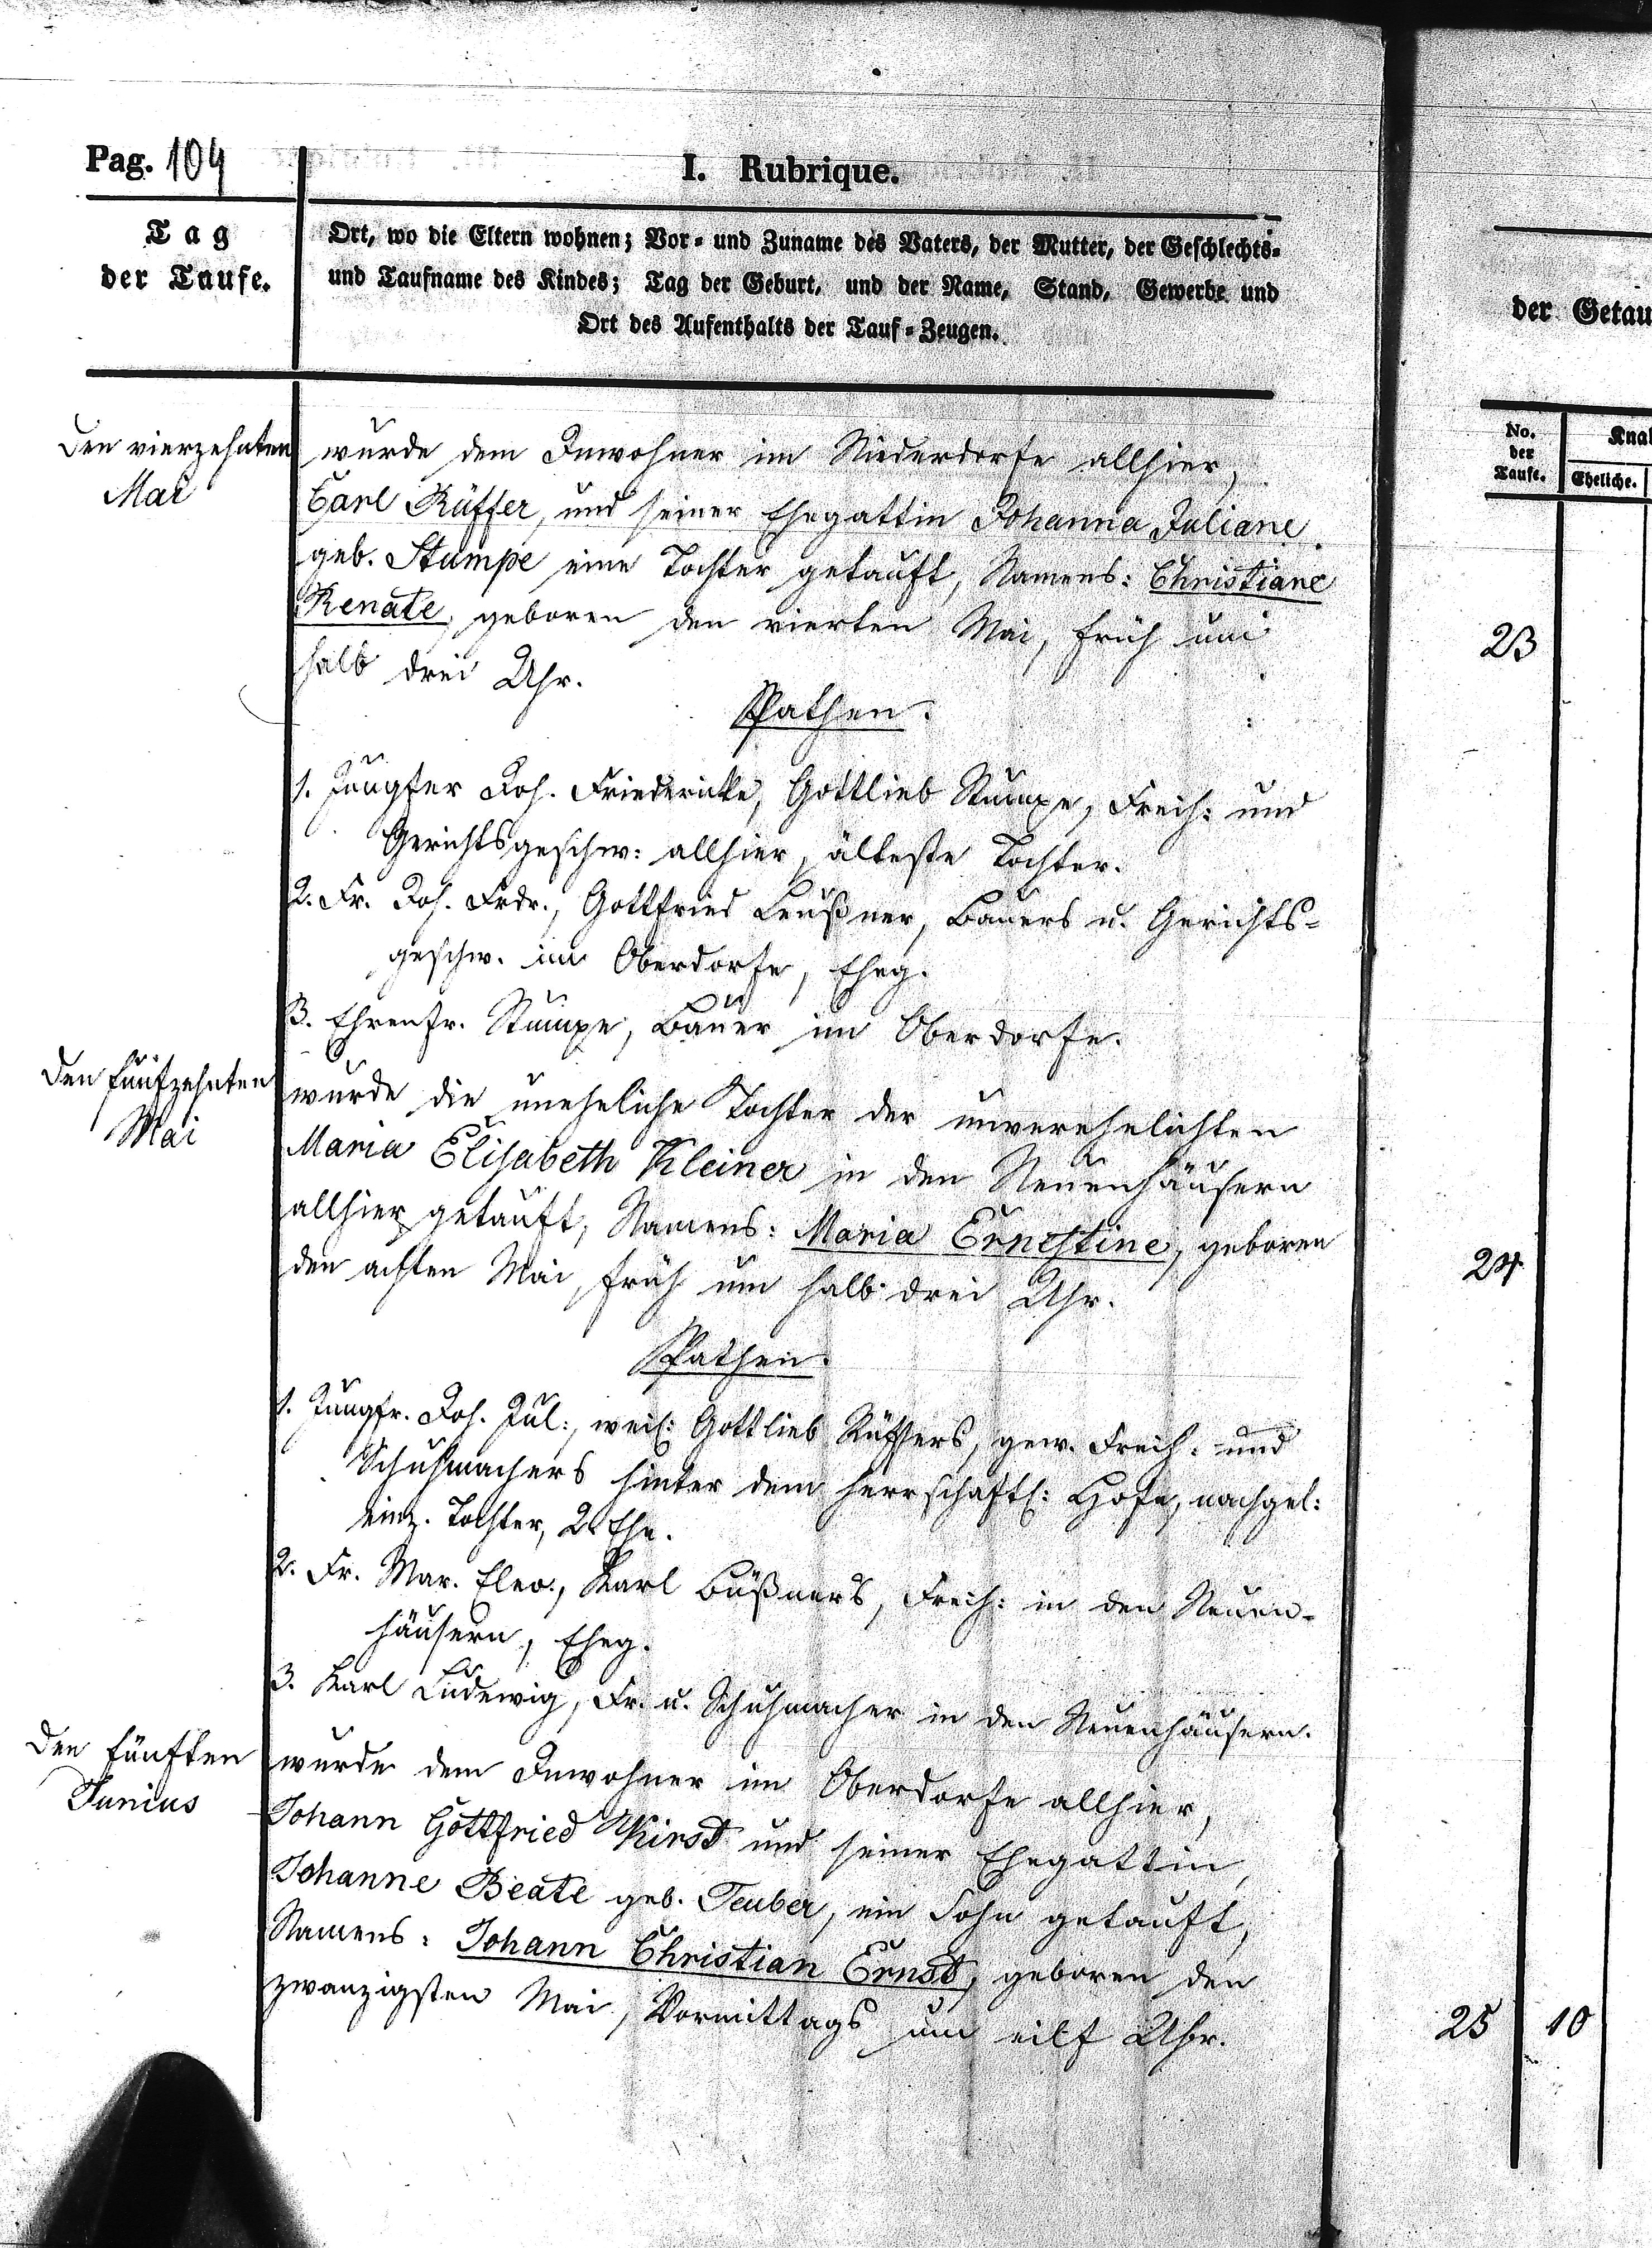 Pag. 104
I. Rubrique.
Tag
der Taufe.
Ort, wo die Eltern wohnen; Vor- und Zuname des Vaters, der Mutter, der Geschlechts-
und Taufname des Kindes; Tag der Geburt, und der Name, Stand, Gewerbe und
Ort des Aufenthalts der Tauf-Zeugen.
der Getau
No.
der
Taufe.
Knab
Eheliche.
Den vierzehnten
Mai
wurde dem Inwohner im Niederdorfe allhier,
Carl Rüffer, und seiner Ehegattin Johanna Juliane
geb. Stumpe eine Tochter getauft, Namens: Christiane
Renate, geboren den vierten Mai, früh um
halb drei Uhr.
23
Pathen.
1. Jungfer Joh. Friedericke, Gottlieb Stumpe, Freih: und
Gerichtsgeschw: allhier, älteste Tochter.
2. Fr. Joh. Frdr., Gottfried Leußner, Bauers u. Gerichts-
geschw. im Oberdorfe, Eheg.
3. Ehrenfr. Stumpe, Bauer im Oberdorfe.
Den fünfzehnten
Mai
wurde die uneheliche Tochter der unverehelichten
Maria Elisabeth Kleiner in den Neuenhäusern
allhier getauft, Namens: Maria Ernestine, geboren
den achten Mai, früh um halb drei Uhr.
24
Pathen.
1. Jungfr. Joh. Jul:, weil: Gottlieb Rüffers, gew. Freih: und
Schuhmachers hinter dem herrschaftl: Hofe, nachgel:
einz. Tochter, 2. Ehe.
2. Fr. Mar. Eleo., Karl Büßners, Freih: in den Neuen-
häusern, Eheg.
3. Karl Ludewig, Fr. u. Schuhmacher in den Neuenhäusern.
Den fünften
Junius
wurde dem Inwohner im Oberdorfe allhier,
Johann Gottfried Kirst und seiner Ehegattin,
Johanne Beate geb. Teuber, ein Sohn getauft,
Namens: Johann Christian Ernst, geboren den
zwanzigsten Mai, Vormittags um eilf Uhr.
25 10